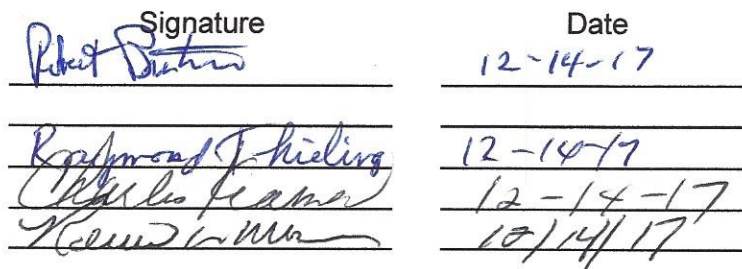 Signature Date
Robert 12-14-17
Raymond Thieling 12-14-17
Charles 12-14-17
12/14/17